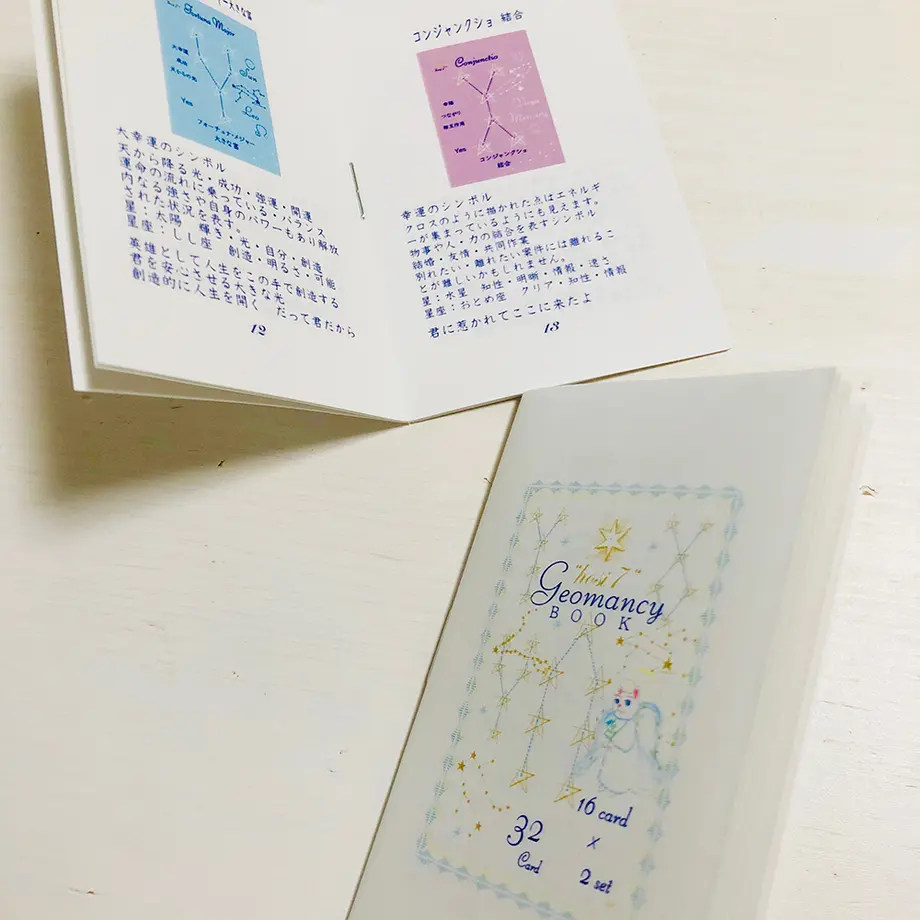 大きな富
Fortuna Major
大幸運
成功
天からの光
Sun
Leo
Yes
フォーチュナ・メジャー
大きな富
大幸運のシンボル
天から降る光・成功・強運・開運
運命の流れに乗っている・バランス
内なる強さや自身のパワーもあり解放
された状況を表す。
星：太陽 輝き・光・自分・創造
星座：しし座 創造・明るさ・可能
英雄として人生をこの手で創造する
君を安心させる大きな光
創造的に人生を開く だって君だから
12
コンジャンクショ 結合
Conjunctio
幸福
つながり
相互作用
Virgo
Mercury
Yes
コンジャンクショ
結合
幸運のシンボル
クロスのように描かれた点はエネルギ
ーが集まっているようにも見えます。
物事や人・力の結合を表すシンボル
結婚・友情・共同作業
別れたい・離れたい案件には離れるこ
とが難しいかもしれません。
星：水星 知性・明晰・情報・速さ
星座：おとめ座 クリア・知性・情報
君に惹かれてここに来たよ
13
"hosi 7"
Geomancy
BOOK
32
Card
16 card
×
2 set